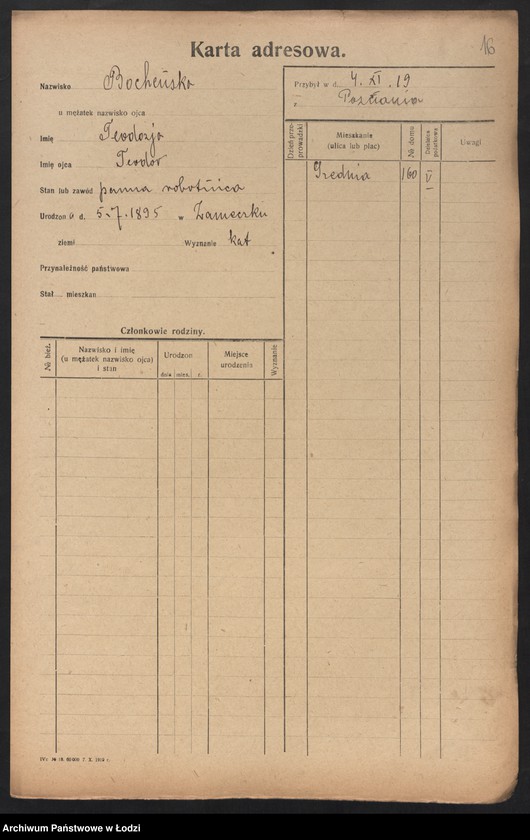 16
Karta adresowa.
Nazwisko Bocheńska
u mężatek nazwisko ojca
Imię Teodozja
Imię ojca Teodor
Stan lub zawód panna robotnica
Urodzon a d. 5.7.1895 w Zameczku
ziemi Wyznanie kat
Przynależność państwowa
Stał mieszkan
Członkowie rodziny.
№ bież.
Nazwisko i imię
(u mężatek nazwisko ojca)
i stan
Urodzon
dnia mies. r.
Miejsce
urodzenia
Wyznanie
Przybył w d. 4. XI. 19
z Poznania
Dzień prze-
prowadzki
Mieszkanie
(ulica lub plac)
№ domu
Dzielnica
podatkowa
Uwagi
Średnia 160 V